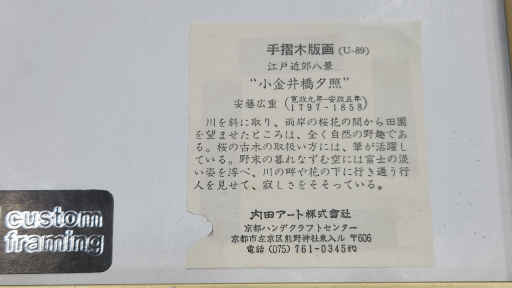 手摺木版画 (U-89)
江戸近郊八景
“小金井橋夕照”
安藤広重 (寛政九年-安政五年 1797-1858)
川を斜に取り、両岸の桜花の間から田園
を望ませたところは、全く自然の野趣であ
る。桜の古木の取扱い方には、筆が活躍し
ている。野末の暮れなずむ空には富士の淡
い姿を浮べ、川の畔や花の下に行き通う行
人を見せて、寂しさをそそっている。
内田アート株式会社
京都ハンデクラフトセンター
京都市左京区熊野神社東入ル 〒606
電話 (075) 761-0345㈹
custom
framing